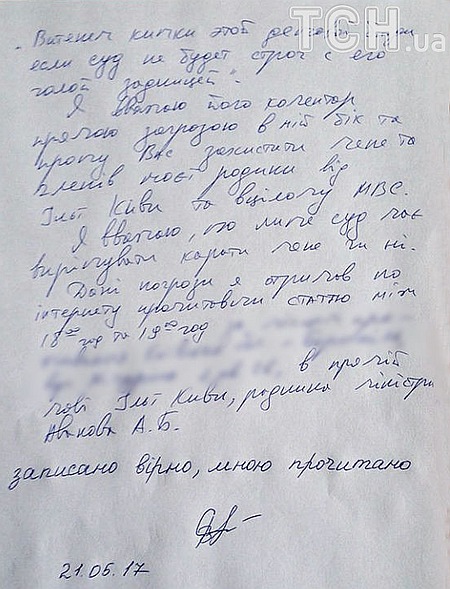 ТСН.ua
"Витечет кишки этой
если суд не будет строг с его
голой задницей".
Я вважаю його коментар
прямою загрозою в мій бік та
прошу Вас захистити мене та
членів моєї родини від
Іллі Киви та вцілому МВС.
Я вважаю, що лише суд має
вирішувати карати мене чи ні.
Дані погрози я отримав по
інтернету прочитавши статтю між
18⁰⁰ год та 19⁰⁰ год
в прямій
мові Іллі Киви, радника міністра
Авакова А.Б.
записано вірно, мною прочитано
21.05.17